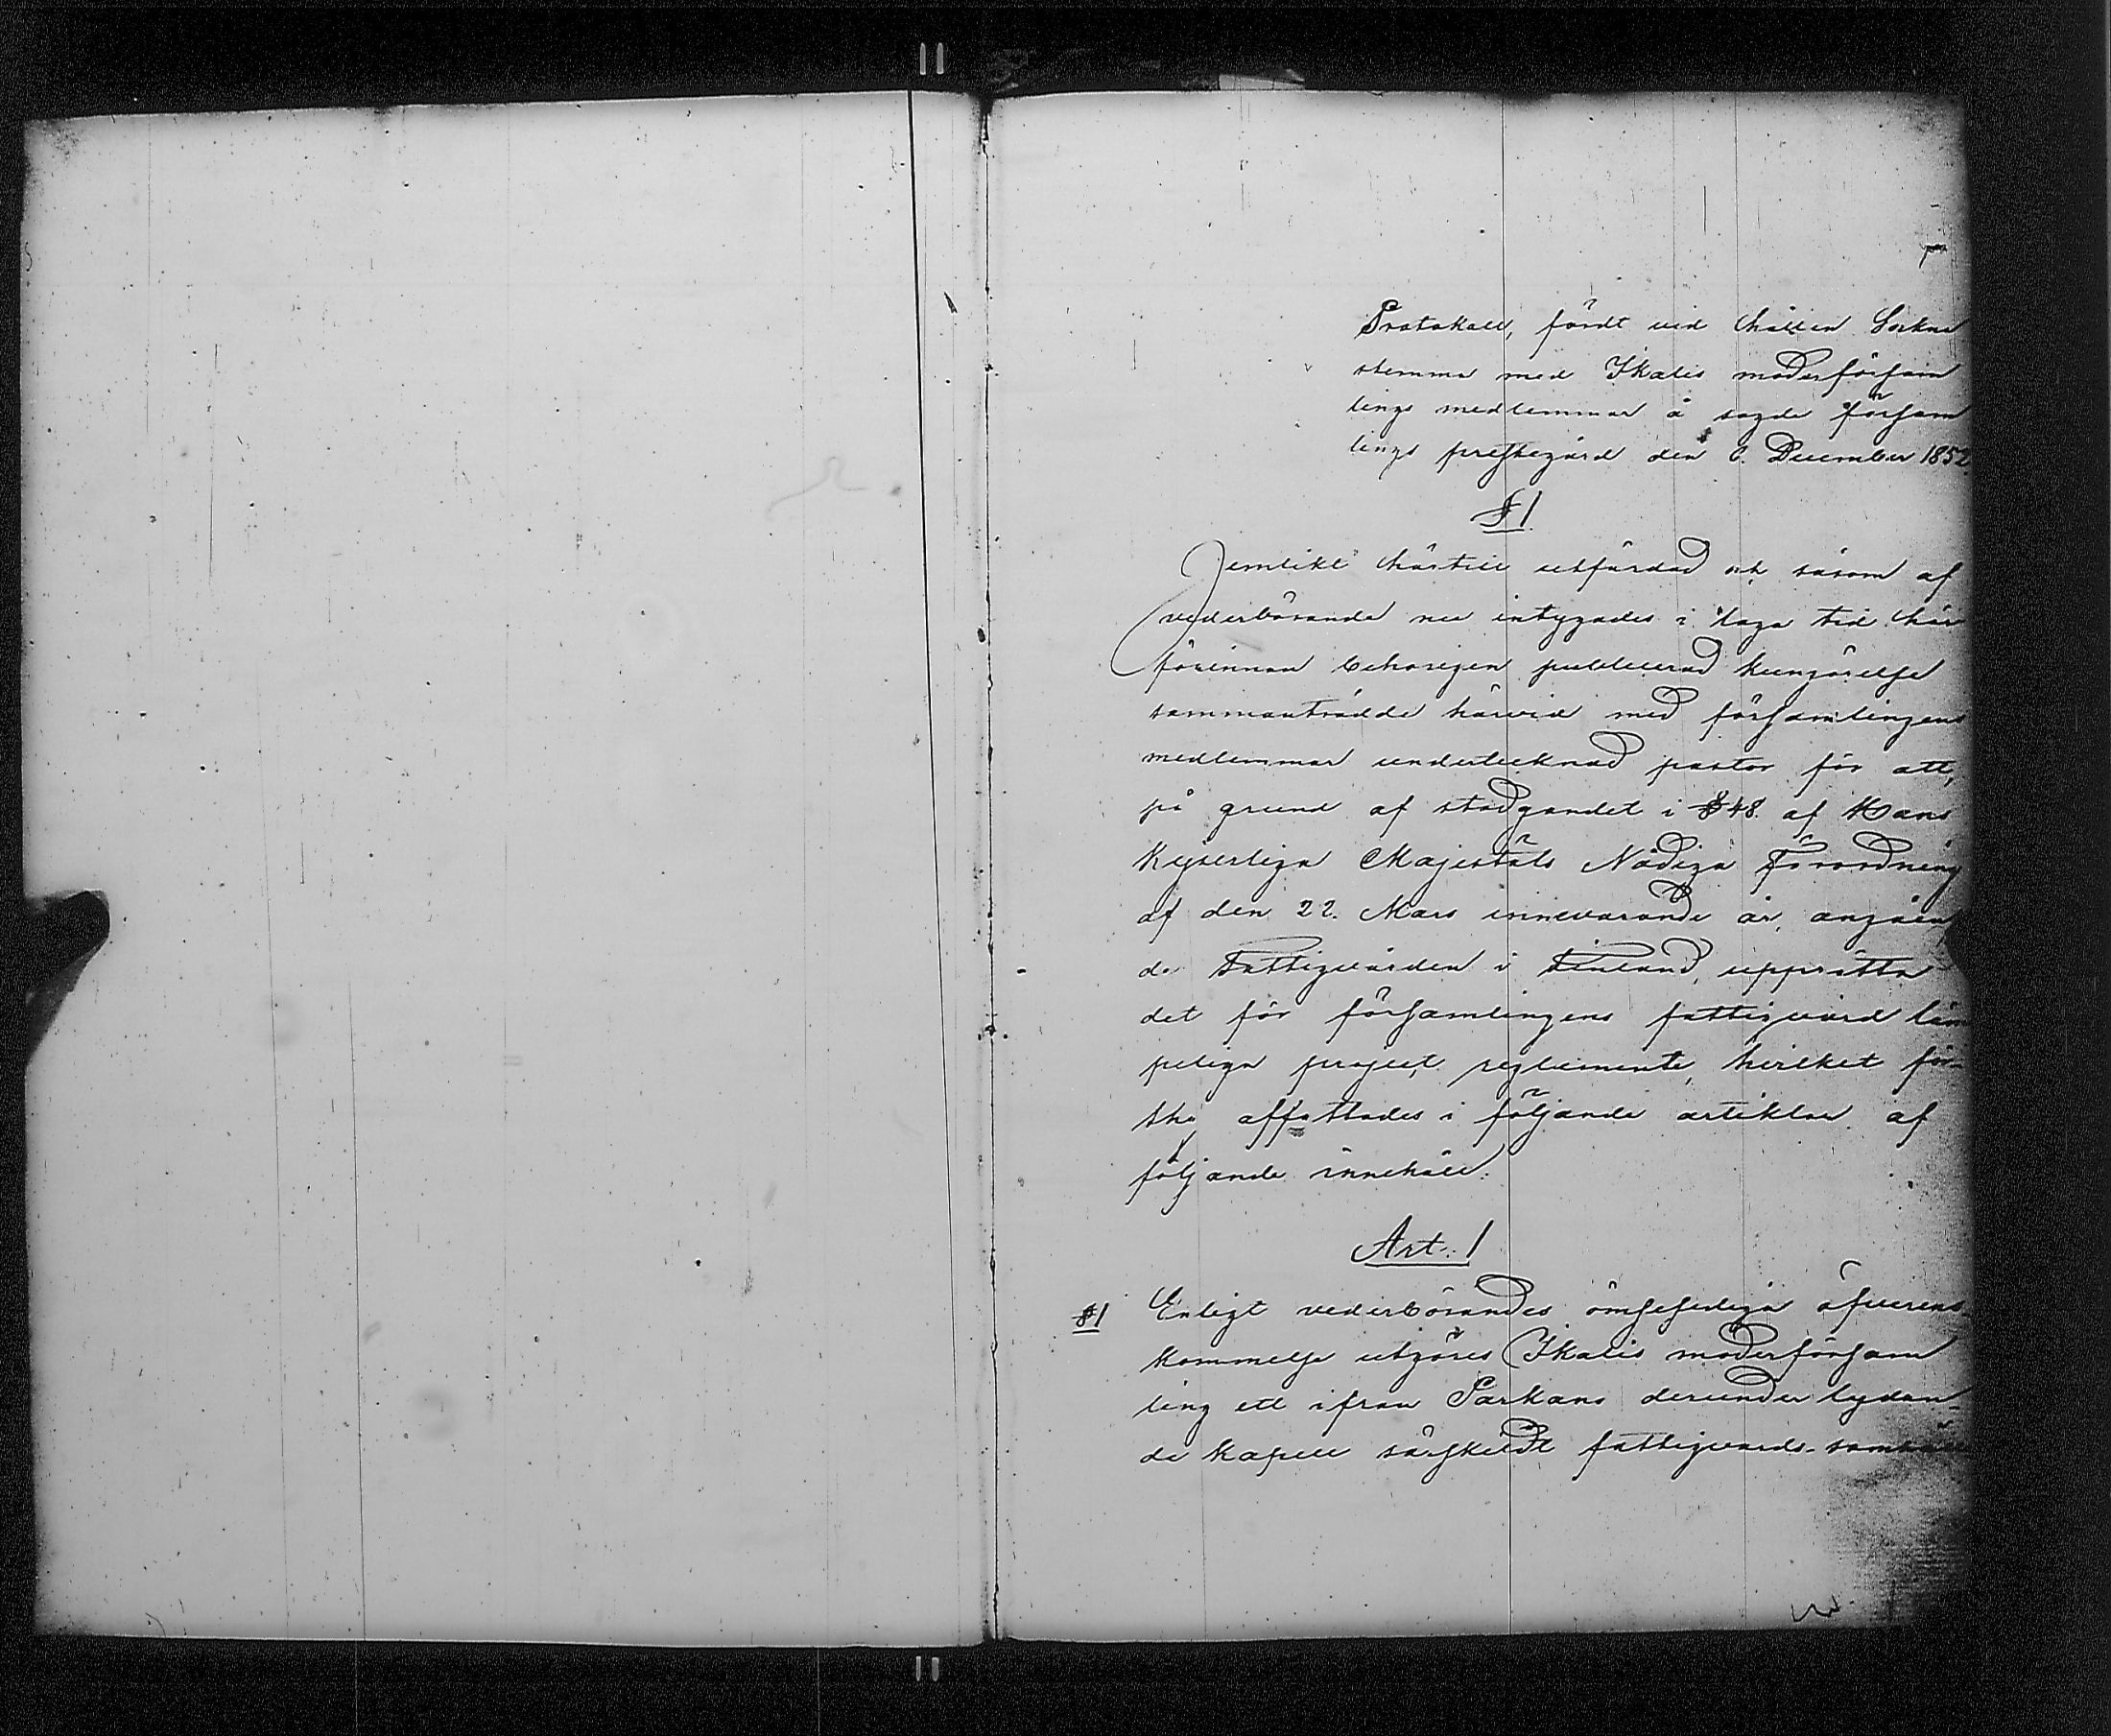 Protokoll, fördt vid hållen Sockne
stemma med Ikalis moderförsam
lings medlemmar å sagde försam
lings prestegård den 6. December 1852.
§ 1
Jemlikt härtill utfärdad och såsom af
vederbörande nu intygades i laga tid här
förinnan behörigen publicerad kungörelse
sammanträdde härvid med församlingens
medlemmar undertecknad pastor för att,
på grund af stadgandet i § 48. af Hans
Kejserliga Majestäts Nådiga Förordning
af den 22. Mars innevarande år, angåen
de Fattigvården i Finland, upprätta
det för församlingens fattigvård läm
peliga project reglemente, hvilket för-
sta affattades i följande artiklar af
följande innehåll:
Art. 1
§ 1 Enligt vederbörandes ömsesidiga öfverens
kommelse utgöres Ikalis moderförsam
ling ett ifrån Parkano derunder lydan-
de kapell särskildt fattigvårds-samhälle